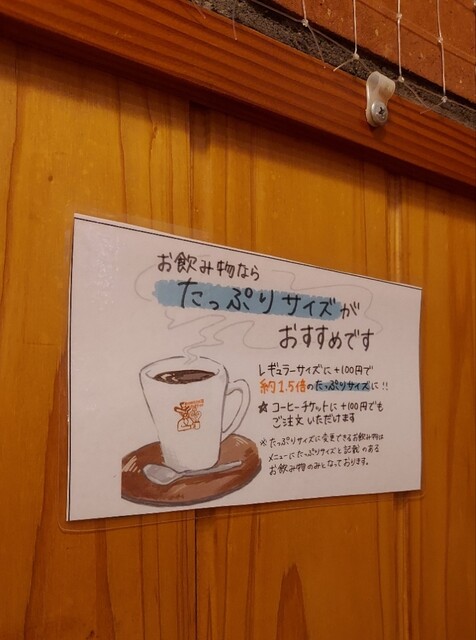 お飲み物なら
たっぷりサイズが
おすすめです
レギュラーサイズに+100円で
約1.5倍のたっぷりサイズに!!
★コーヒーチケットに+100円でも
ご注文いただけます
※たっぷりサイズに変更できるお飲み物は
メニューにたっぷりサイズと記載のある
お飲み物のみとなっております。